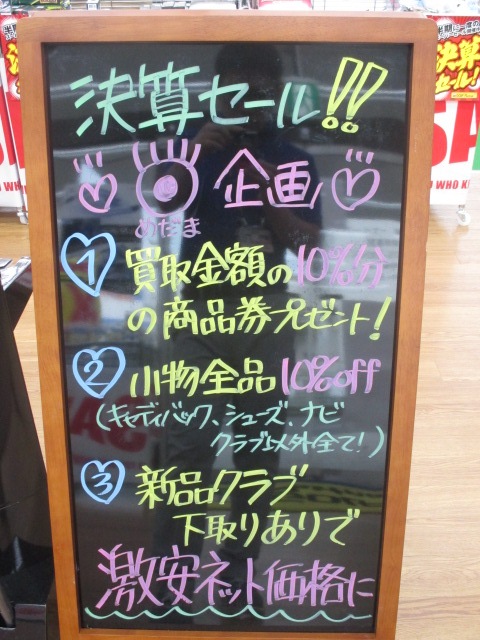 決算セール!!
企画
めだま
1 買取金額の10%分
の商品券プレゼント!
2 小物全品10%off
(キャディバック、シューズ、ナビ
クラブ以外全て!)
3 新品クラブ
下取りありで
激安ネット価格に
半期に一度の
決算
セール!
SA
WHO K